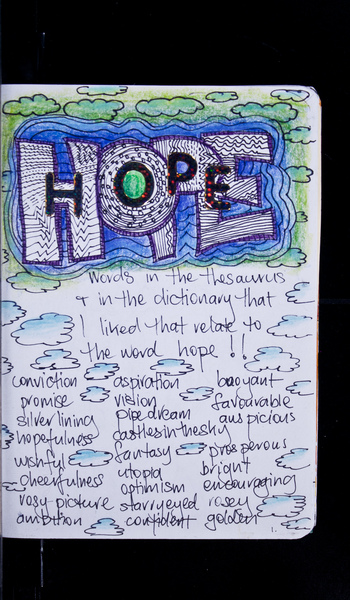 HOPE
HOPE
Words in the thesaurus
+ in the dictionary that
I liked that relate to
the word hope !!
conviction aspiration buoyant
promise vision favourable
silver lining pipe dream auspicious
hopefulness castles in the sky
wishful fantasy prosperous
cheerfulness utopia bright
rosy picture optimism encouraging
ambition starryeyed rosey
confident golden